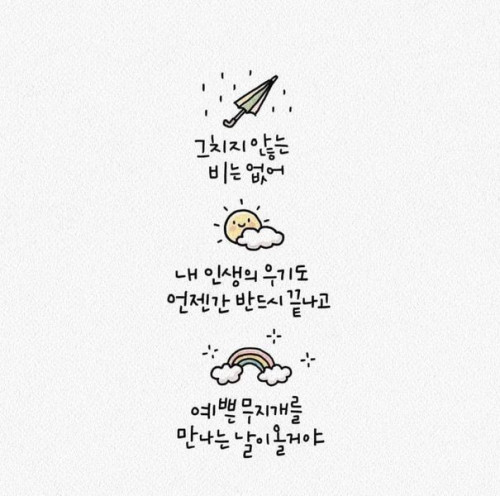 그치지 않는
비는 없어
내 인생의 우기도
언젠간 반드시 끝나고
예쁜 무지개를
만나는 날이 올거야